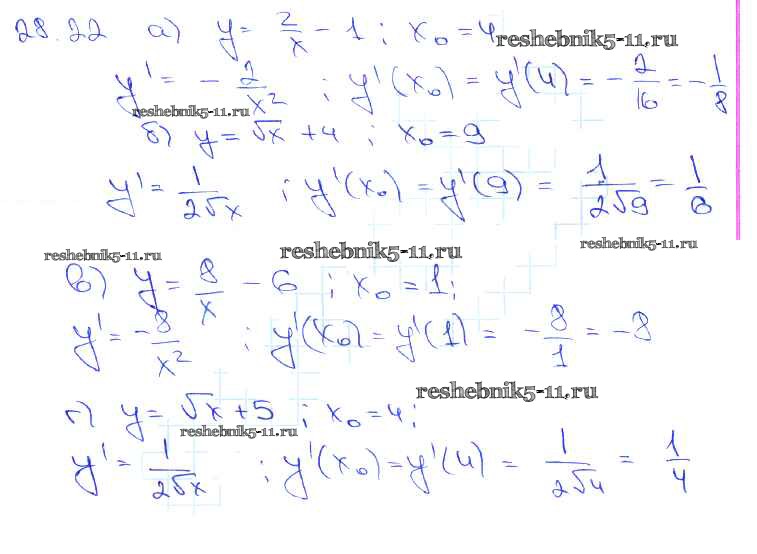 28.22 а) y = 2/x - 1 ; x₀ = 4
reshebnik5-11.ru
y' = - 2/x² ; y'(x₀) = y'(4) = - 2/16 = - 1/8
reshebnik5-11.ru
б) y = √x + 4 ; x₀ = 9
y' = 1/2√x ; y'(x₀) = y'(9) = 1/2√9 = 1/6
reshebnik5-11.ru
reshebnik5-11.ru
reshebnik5-11.ru
в) y = 8/x - 6 ; x₀ = 1;
y' = - 8/x² ; y'(x₀) = y'(1) = - 8/1 = - 8
reshebnik5-11.ru
г) y = √x + 5 ; x₀ = 4;
reshebnik5-11.ru
y' = 1/2√x ; y'(x₀) = y'(4) = 1/2√4 = 1/4